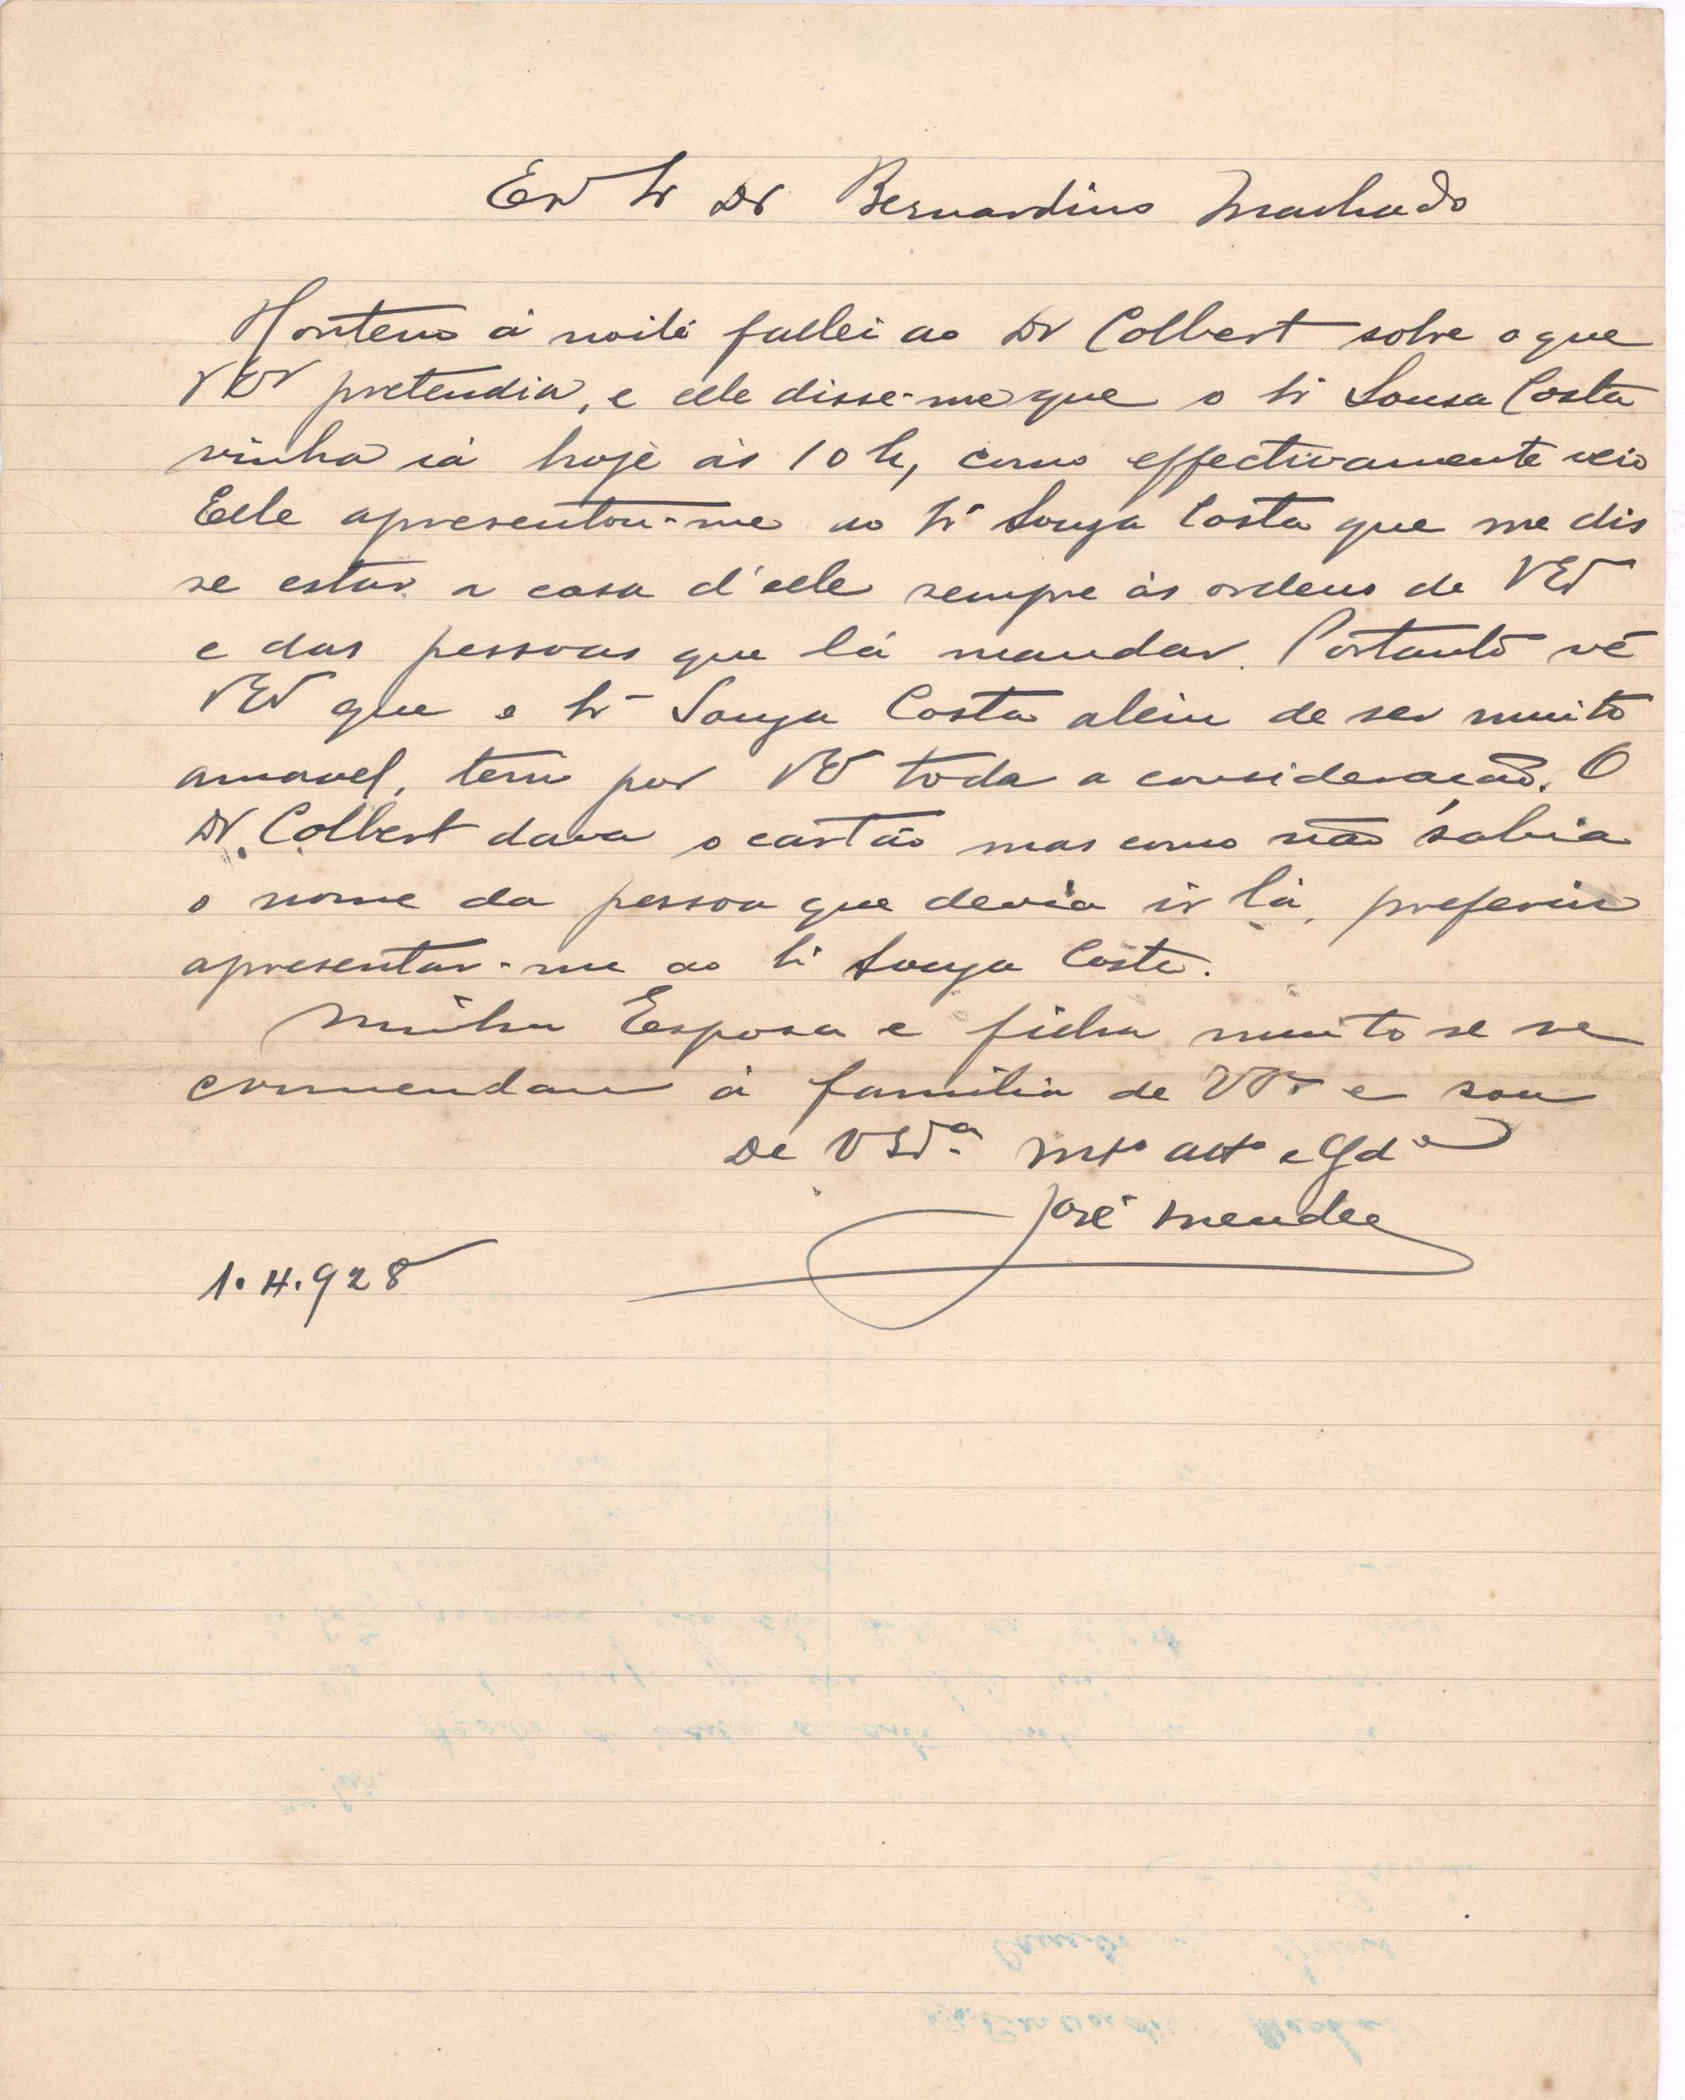 Exmo Sr Dr Bernardino Machado
Hontem á noite fallei ao Dr Colbert sobre o que
VExª pretendia, e elle disse-me que o Sr Sousa Costa
vinha cá hoje ás 10 h, como effectivamente veio
Elle apresentou-me ao Sr Souza Costa que me dis
se estar a casa d'elle sempre ás ordens de VEx
e das pessoas que lá mandar. Portanto vê
VEx que o Sr Souza Costa além de ser muito
amavel, tem por VEx toda a consideração. O
Dr. Colbert dava o cartão mas como não sabia
o nome da pessoa que devia ir lá, preferiu
apresentar-me ao Sr Souza Costa.
Minha Esposa e filha muito se re
commendam á familia de VExª e sou
De VExª Mto atto e Obdo
José Mendes
1.4.928